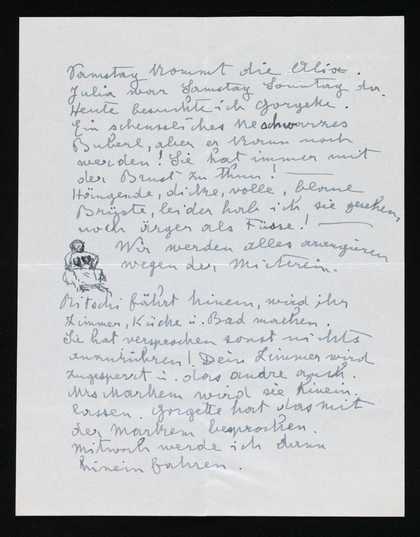 Samstag kommt die Alice.
Julia war Samstag Sonntag da.
Heute besuchte ich Gorgette.
Ein scheussliches schwarzes
Buberl, aber er kann noch
werden! Sie hat immer mit
der Brust zu thun!
Hängende, dicke, volle, blaue
Brüste, leider hab ich sie gesehen,
noch ärger als Füsse!
Wir werden alles arrangieren
wegen der Mieterin.
Pitschi fährt hinein, wird ihr
Zimmer, Küche u. Bad machen.
Sie hat versprochen sonst nichts
anzurühren! Dein Zimmer wird
zugesperrt u. das andre auch.
Mrs Markem wird sie hinein
lassen. Gorgette hat das mit
der Markem besprochen.
Mittwoch werde ich dann
hinein fahren.